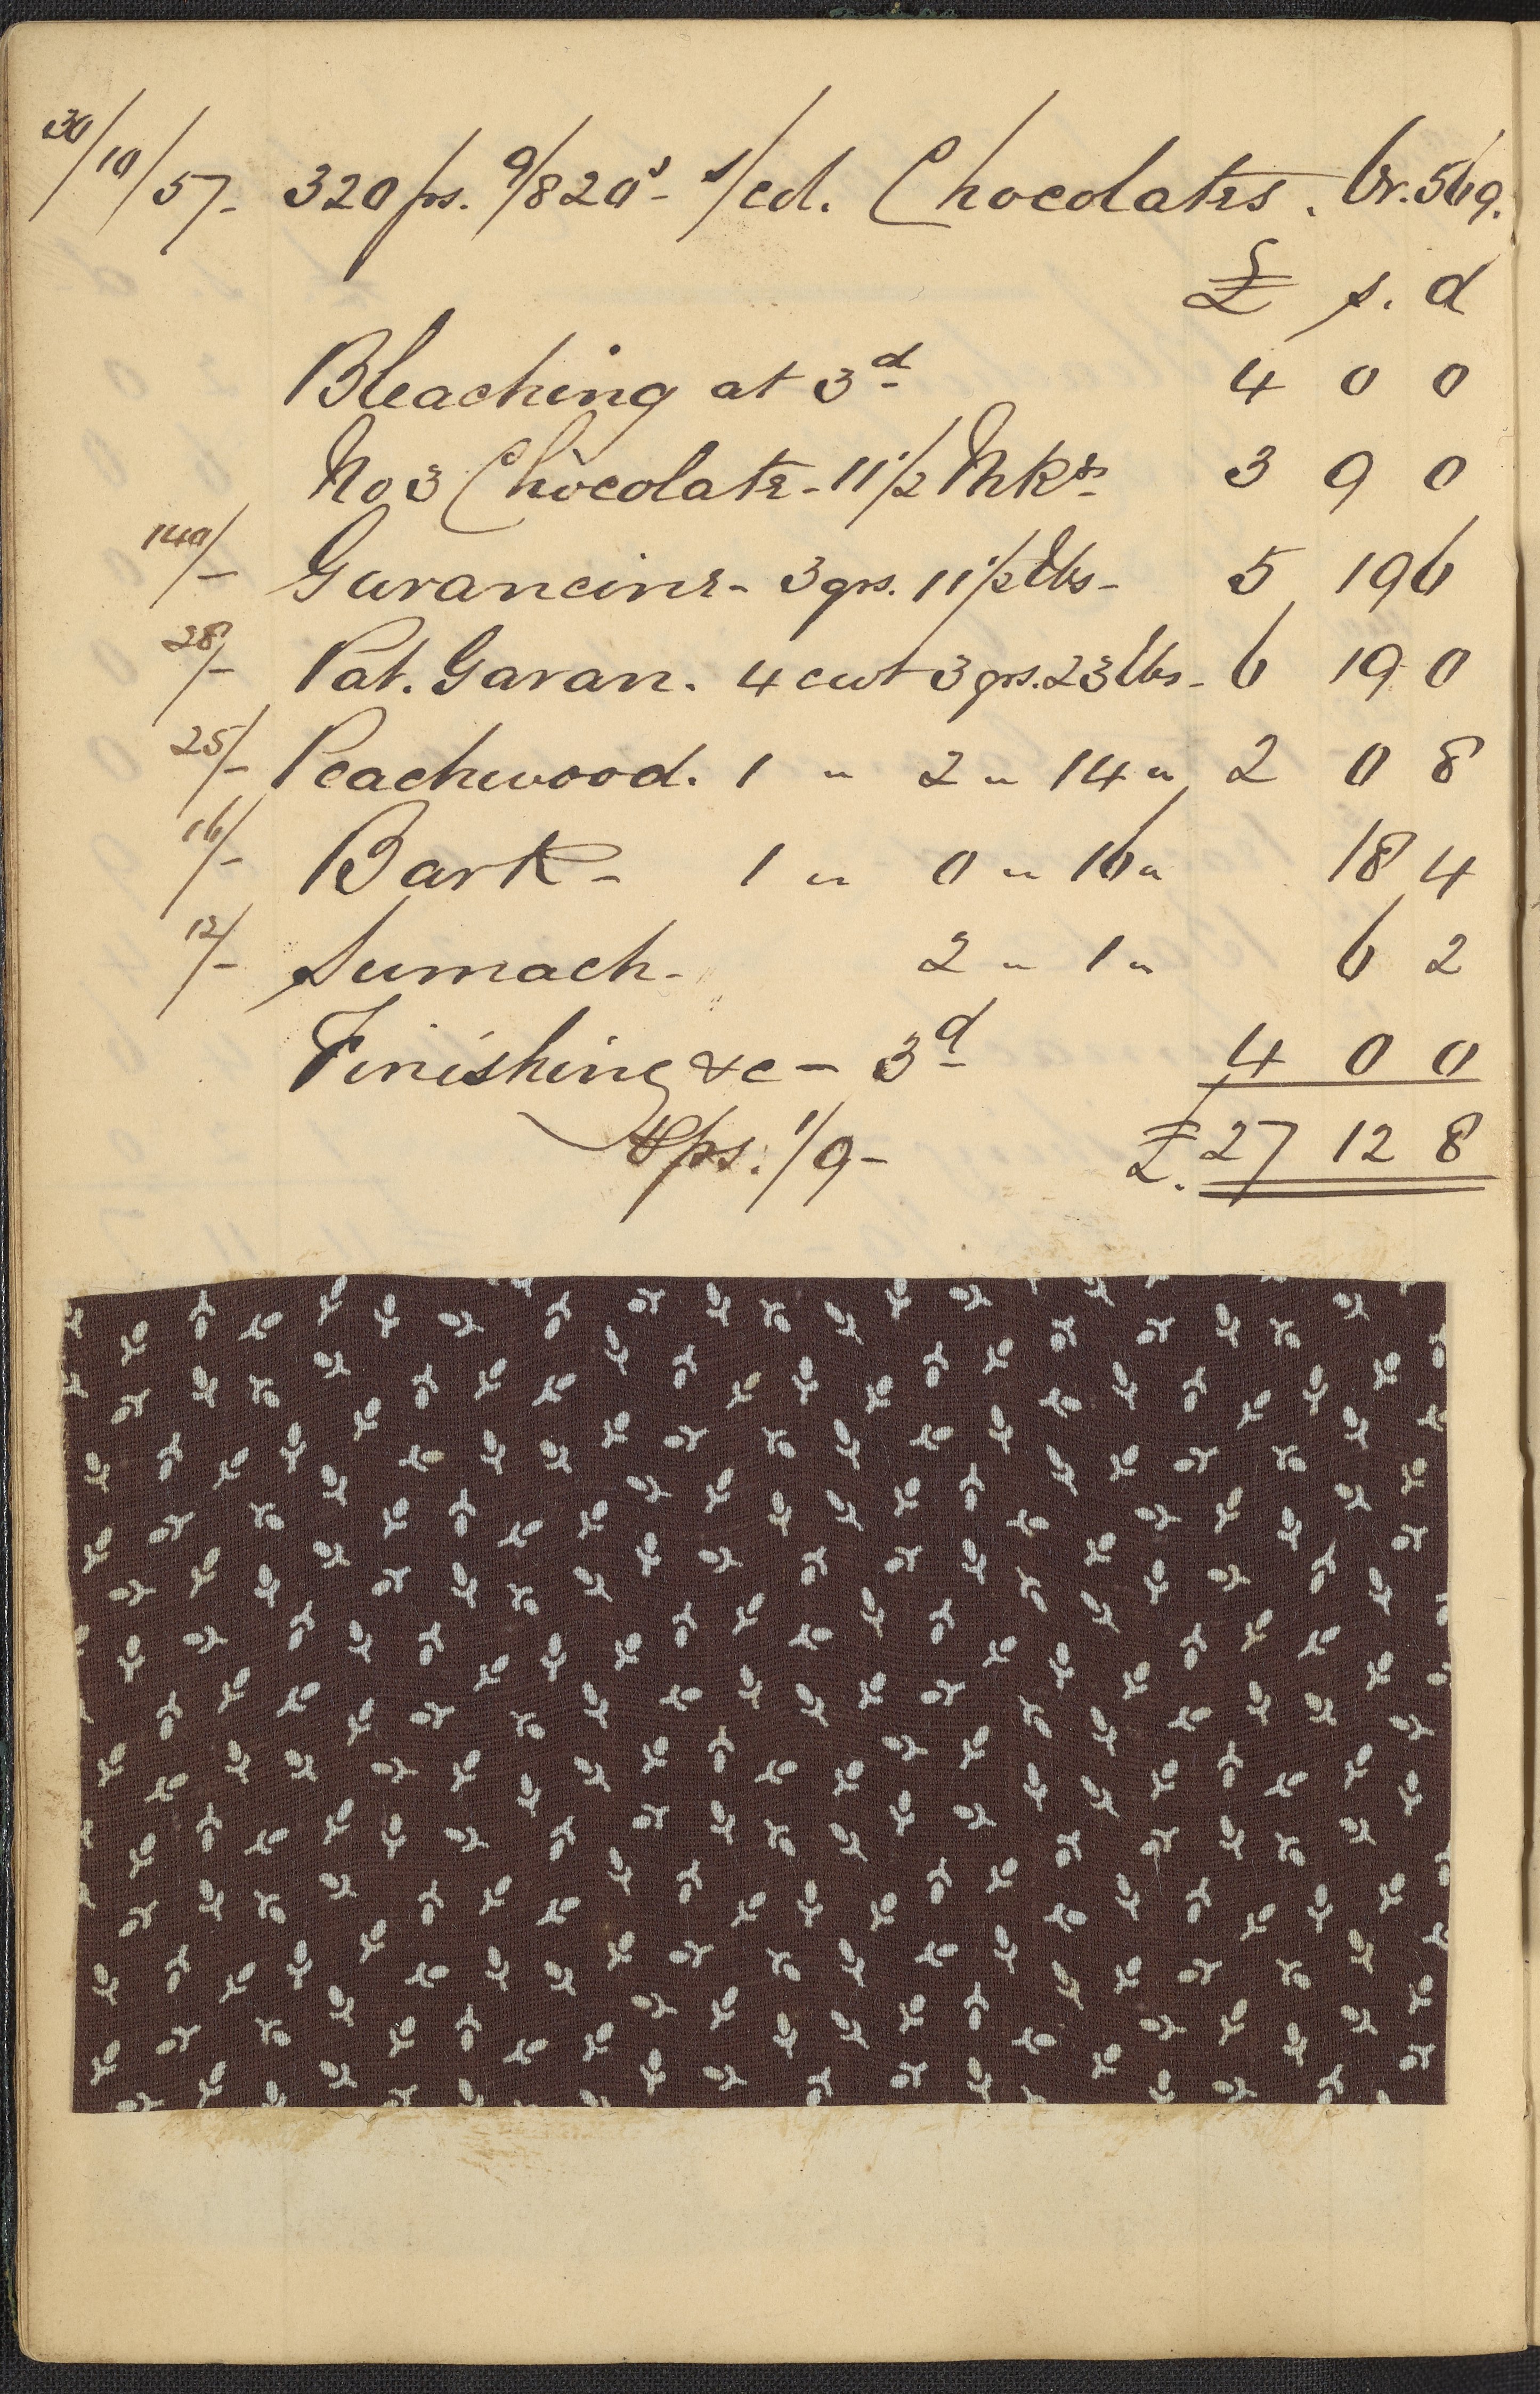 30/10/57- 320 ps. 9/8 20s - 1/cd. Chocolates. br. 569.
£ s. d
Bleaching at 3d 4 0 0
No 3 Chocolate - 11 1/2 Mks - 3 9 0
140/- Garancine - 3 qrs. 11 1/2 lbs - 5 19 6
28/- Pat. Garan. 4 cwt 3 qrs. 23 lbs - 6 19 0
25/- Peachwood. 1 " 2 " 14 " 2 0 8
16/- Bark - 1 " 0 " 16 " 18 4
12/- Sumach - 2 " 1 " 6 2
Finishing &c - 3d 4 0 0
ps. 1/9 - £. 27 12 8